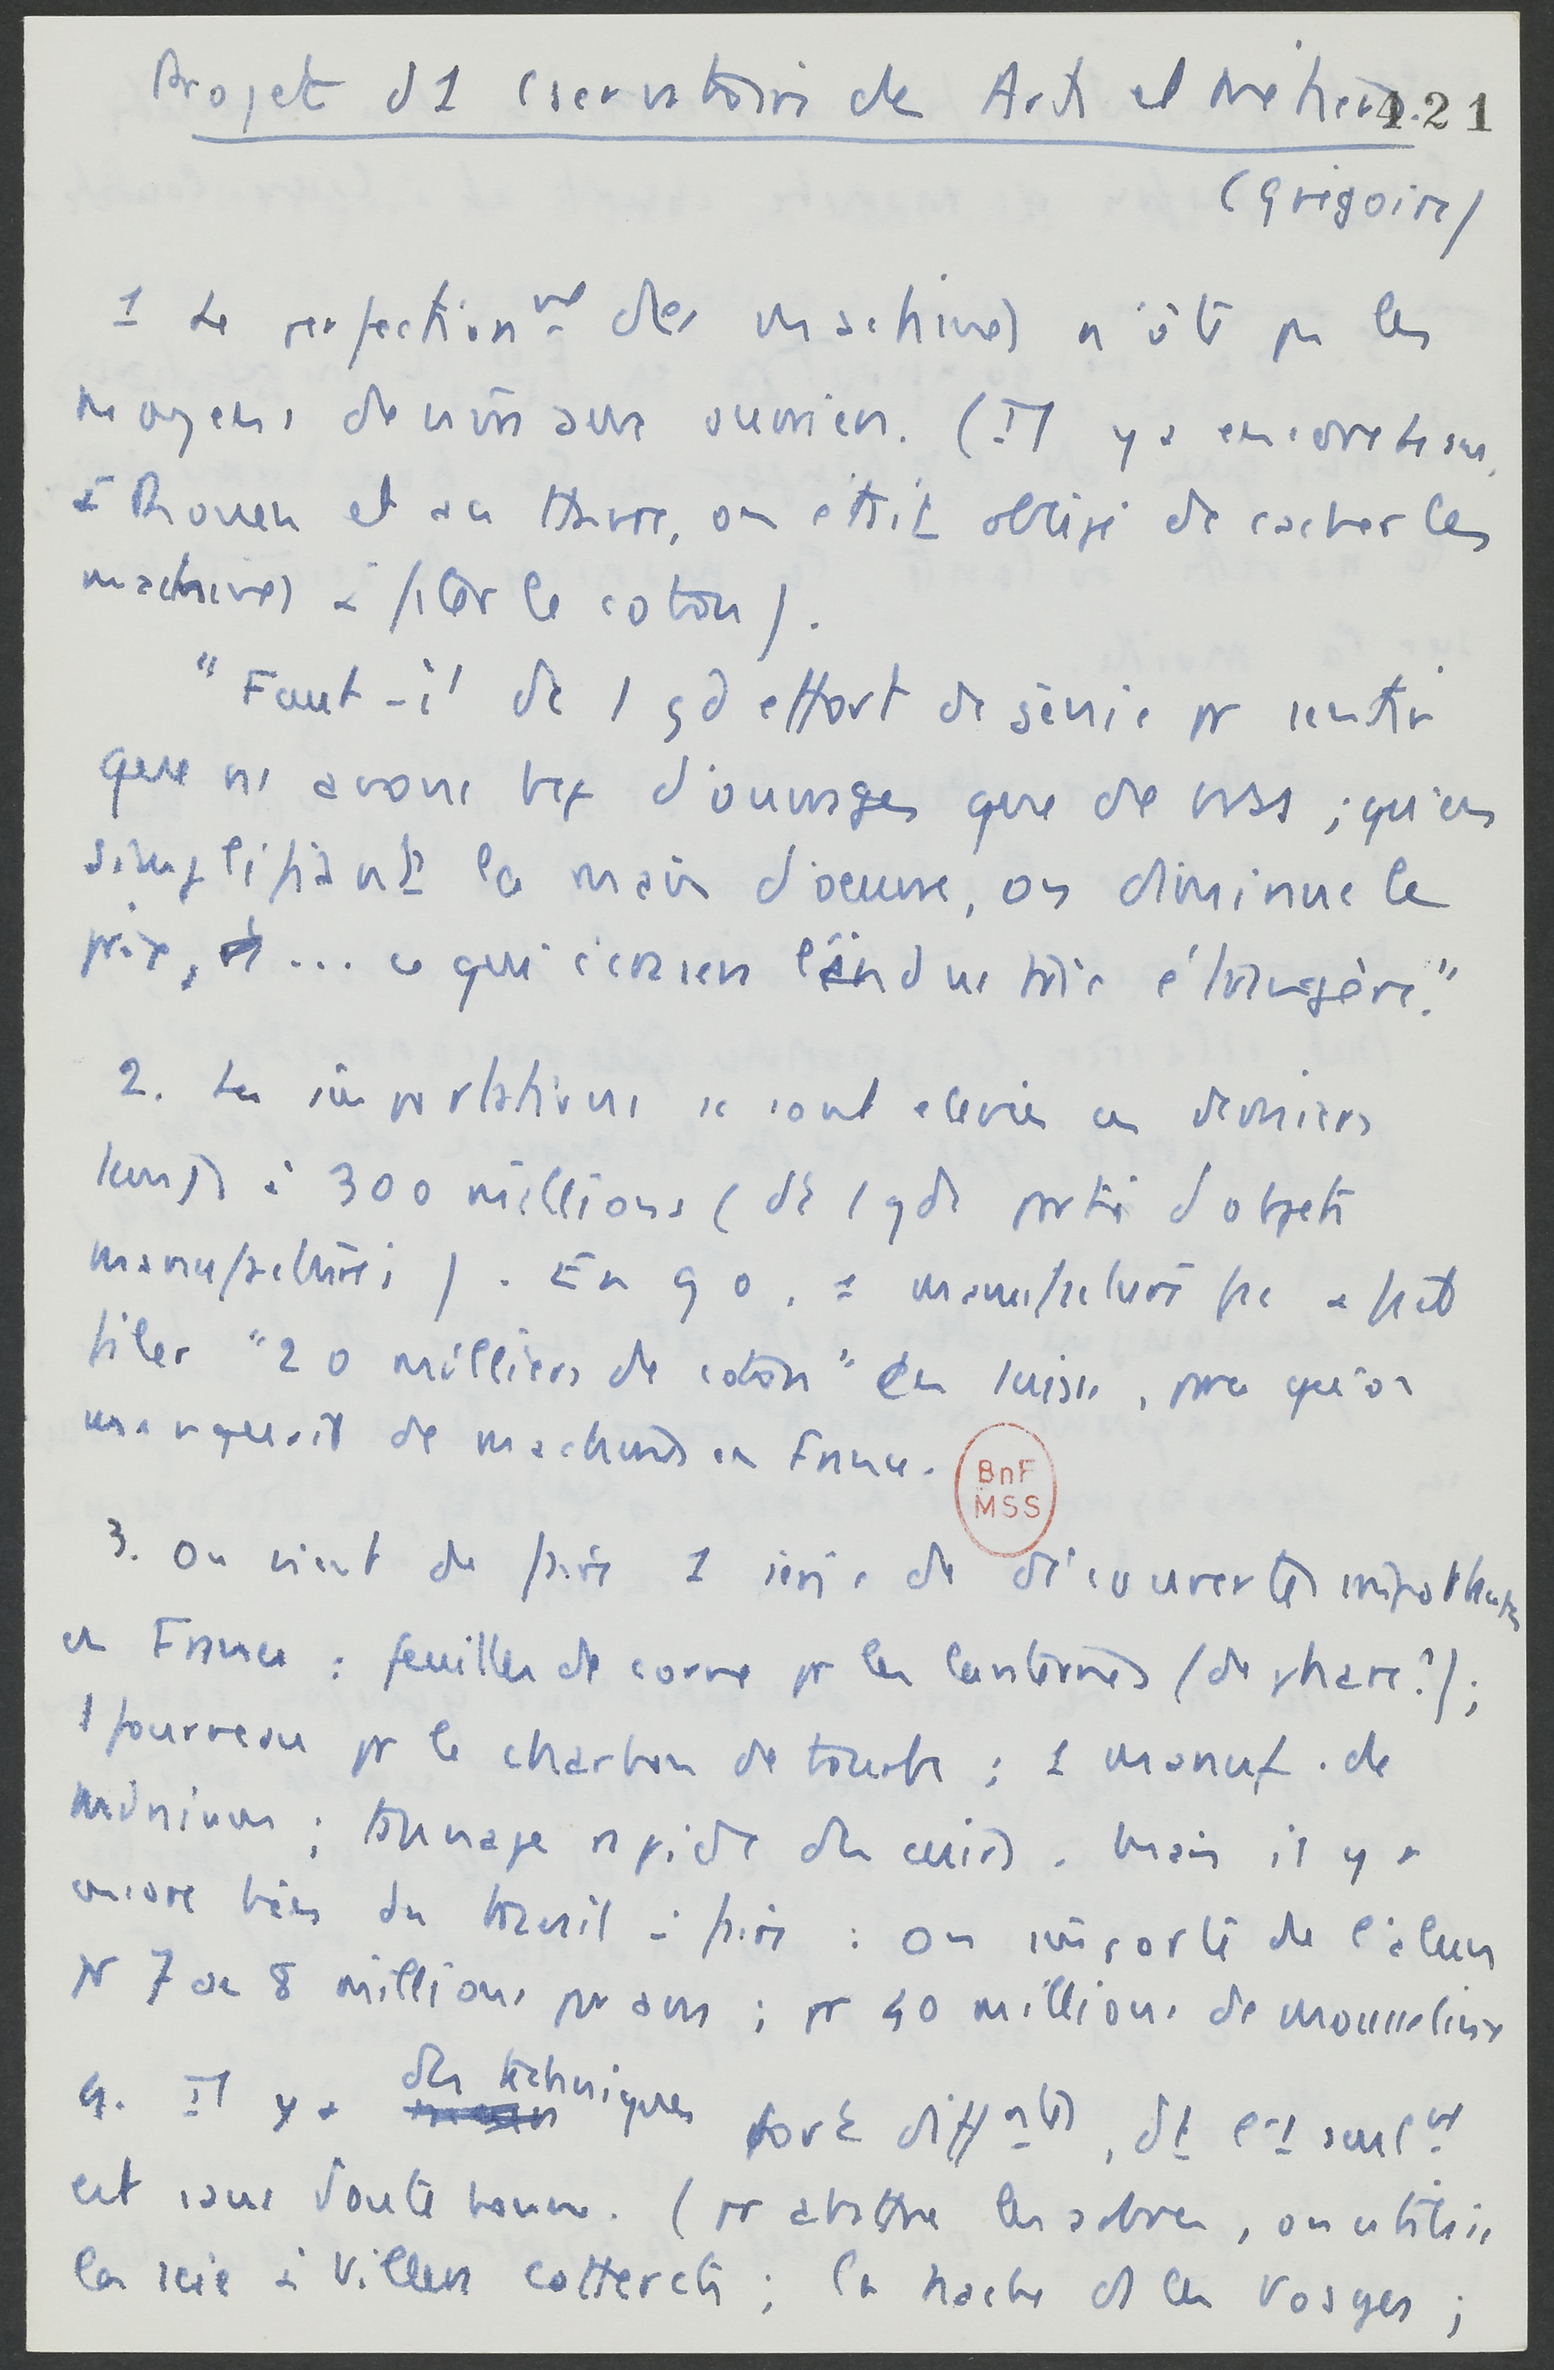 Projet d 1 Cservatoire des Arts et Métiers. 421
(Grégoire)
1 Le perfectionnt des machines n'ôte pas les
moyens de vivre aux ouvriers. (Il y a encore 4 ans,
à Rouen et au Havre, on était obligé de cacher les
machines à filer le coton).
"Faut-il de 1 gd effort de génie pr sentir
que ns avons bcp + d'ouvrages que de bras ; qu'en
simplifiant la main d'oeuvre, on diminue le
prix, ... ce qui écrasera l'industrie étrangère."
2. Les importations se sont élevées ces derniers
temps à 300 millions (dt 1 gde partie d'objets
manufacturés). En 90, 1 manufacture frse a fait
filer "20 milliers de coton" en Suisse, parce qu'on
manquait de machines en France.
3. On vient de faire 1 série de découvertes importantes
en France : feuilles de corne pr les lanternes (de phare?) ;
1 fourneau pr le charbon de tourbe ; 1 manuf. de
minium ; tannage rapide des cuirs. Mais il y a
encore bien du travail à faire : on importe de l'alun
pr 7 ou 8 millions par ans ; pr 40 millions de mousseline
4. Il y a des techniques fort difftes, dt l'1 seult
est sans doute bonne. (pr abattre les arbres, on utilise
la scie à Villers Cotterets ; la hache ds les Vosges ;
BnF
MSS